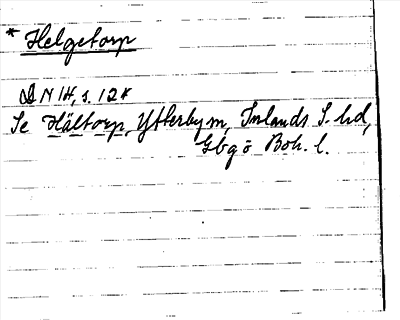 * Helgetorp
DN IH, s. 124
Se Hältorp, Ytterby sn, Inlands S. hd,
Gbgo Boh. l.